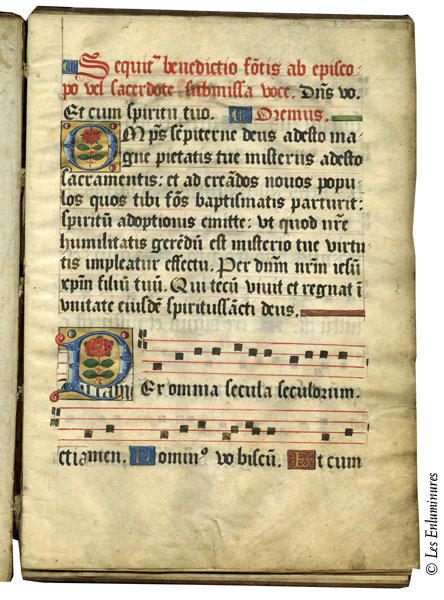 Sequit' benedictio fōtis ab episco-
po vel sacerdote submissa voce. Dn̄s vo.
Et cum spiritu tuo. Oremus.
Omp̄s sēpiterne deus adesto ma-
gne pietatis tue misteriis adesto
sacramentis: et ad creādos nouos popu-
los quos tibi fōs baptismatis parturit:
spiritū adoptionis emitte: vt quod nr̄e
humilitatis gerēdū est misterio tue virtu-
tis impleatur effectu. Per dnm̄ nrm̄ iesū
xp̄m filiū tuū. Qui tecū viuit et regnat ī
vnitate eiusdē spiritussācti deus.
Per omnia secula seculorum.
Amen. Domin' vobiscū. Et cum
© Les Enluminures